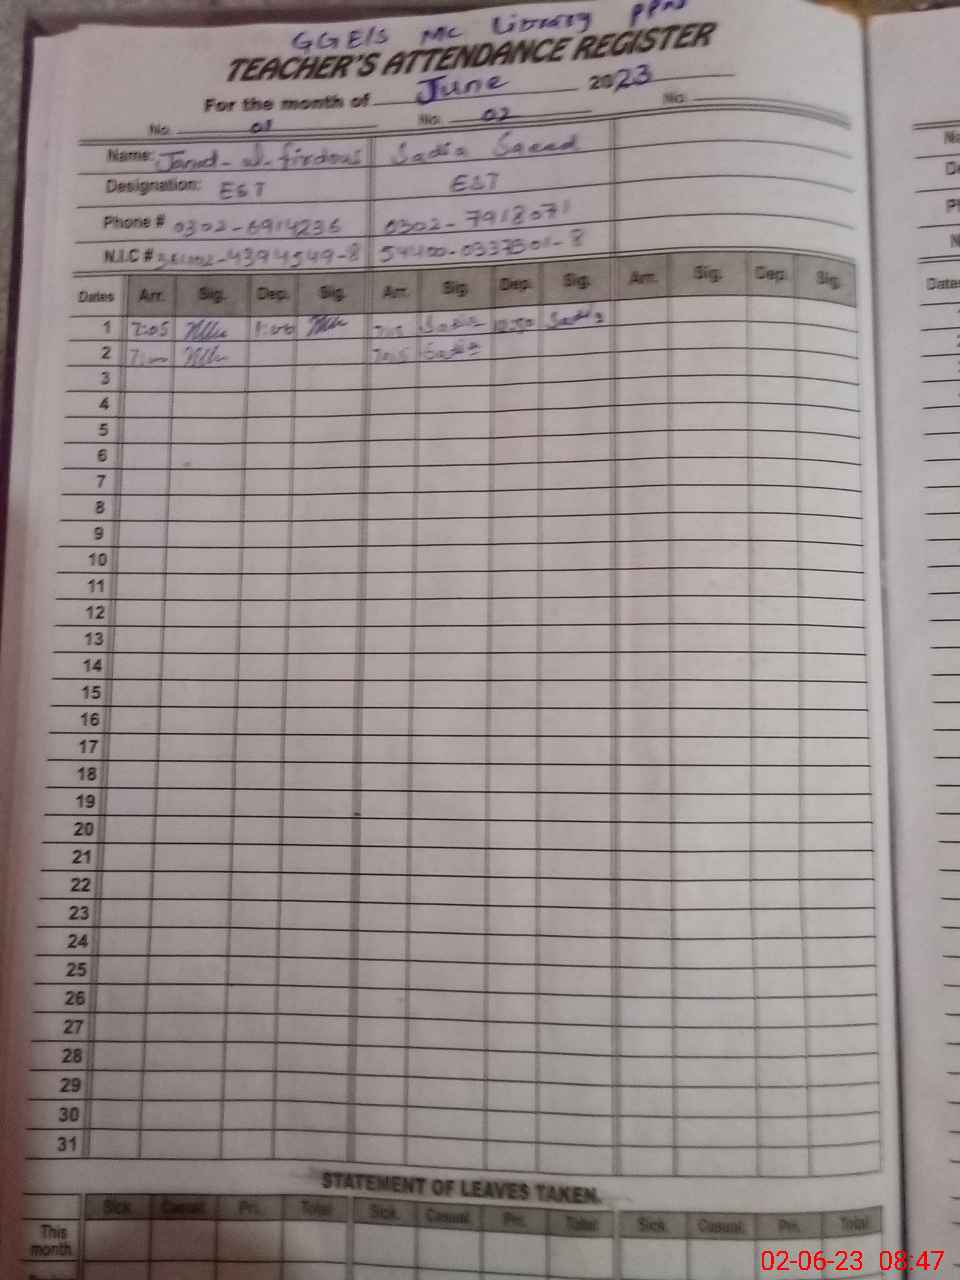 GGE/S MC Library PPNS
TEACHER'S ATTENDANCE REGISTER
For the month of June 2023
No. 01 No. 02 No.
Name: Sadia Saeed
Designation: EST EST
Phone # 0302-6914236 0302-7918071
N.I.C # -4394549-8 54400-0337501-8
Dates Arr. Sig. Dep. Sig. Arr. Sig. Dep. Sig. Arr. Sig. Dep. Sig.
1 7:05 1:00 Sadia 12:50 Sadia
2 Sadia
3
4
5
6
7
8
9
10
11
12
13
14
15
16
17
18
19
20
21
22
23
24
25
26
27
28
29
30
31
STATEMENT OF LEAVES TAKEN.
Sick. Casual. Pri.. Total Sick. Casual. Pri. Total Sick. Casual. Pri. Total
This
month
02-06-23 08:47